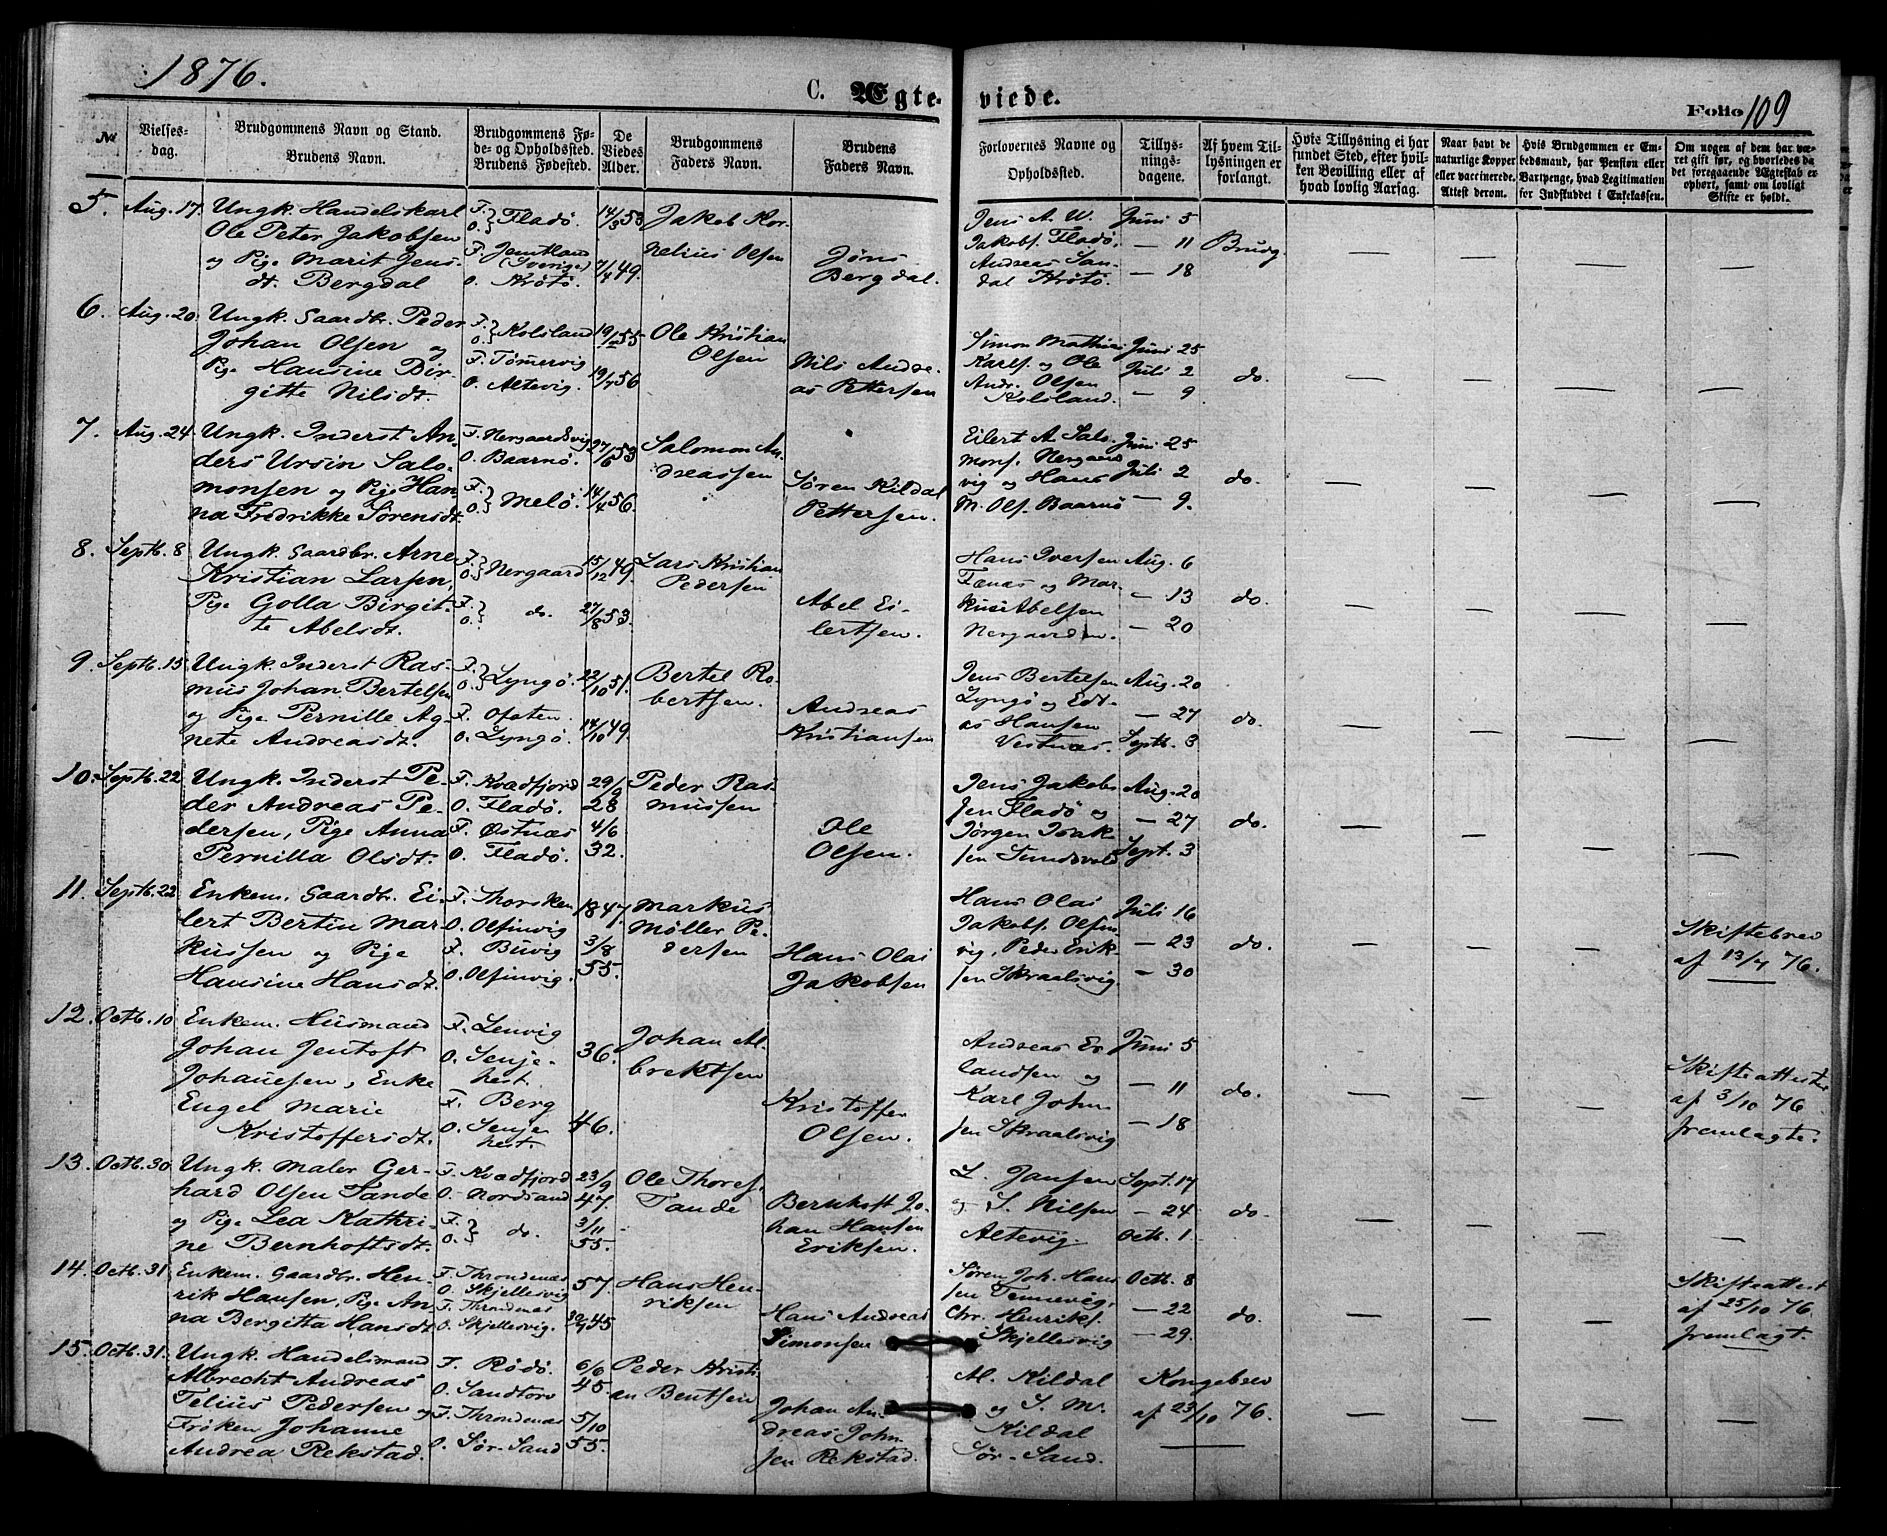 1876.
C. Ægte-
viede.
Folio 109
№
Vielses-
dag.
Brudgommens Navn og Stand.
Brudens Navn.
Brudgommens Fø-
de- og Opholdssted.
Brudens Fødested.
De
Viedes
Alder.
Brudgommens
Faders Navn.
Brudens
Faders Navn.
Forlovernes Navne og
Opholdssted.
Tillys-
nings-
dagene.
Af hvem Til-
lysningen er
forlangt.
Hvis Tillysning ei har
fundet Sted, efter hvil-
ken Bevilling eller af
hvad lovlig Aarsag.
Naar havt de
naturlige Kopper
eller vaccinerede.
Attest derom.
Hvis Brudgommen er Em-
bedsmand, har Pension eller
Vartpenge, hvad Legitimation
for Indskuddet i Enkekassen.
Om nogen af dem har væ-
ret gift før, og hvorledes da
det foregaaende Ægteskab er
ophørt, samt om lovligt
Skifte er holdt.
5. Aug. 17.
Ungk. Handelskarl
Ole Peter Jakobsen
og Pige Marit Jens-
dt. Bergdal
F.
O. } Fladø.
F. Jemtland
(Sverige)
O. Krøtø.
14/3 53
7/4 49.
Jakob Kor-
nelius Olsen
Jøns
Bergdal.
Jens A. W.
Jakobs. Fladø,
Andreas San-
dal Krøtø.
Juni 5
— 11
— 18
Brudg
6. Aug. 20.
Ungk. Gaardbr. Peder
Johan Olsen og
Pige Hansine Bir-
gitte Nilsdt.
F.
O. } Kolsland
F. Tømmervig
O. Altevig.
55
56
Ole Kristian
Olsen
Nils Andre-
as Pettersen
Simon Mathias
Karls. og Ole
Andr. Olsen
Kolsland.
Juni 25
Juli 2
— 9
do.
7. Aug. 24.
Ungk. Inderst An-
ders Ursin Salo-
monsen og Pige Han-
na Fredrikke Sørensdt.
F. Nergaardsvig
O. Baarnø.
F.
O. } Melø.
27/6 53
14/4 56.
Salomon An-
dreassen
Søren Kildal
Pettersen.
Eilert A. Salo-
mons. Nergaards-
vig og Hans
M. Ols. Baarnø
Juni 25
Juli 2
— 9.
do.
8. Septb. 8
Ungk. Gaardbr. Arne
Kristian Larsen,
Pige Golla Birgit-
te Abelsdt.
F.
O. } Nergaard
F.
O. } do.
15/12 49.
27/8 53.
Lars Kristian
Pedersen
Abel Ei-
lertsen.
Hans Iversen
Fænæs og Mar-
kus Abelsen
Nergaarden.
Aug. 6
— 13
— 20
do.
9. Septb. 15.
Ungk. Inderst Ras-
mus Johan Bertelsen
og Pige Pernille Ag-
nete Andreasdt.
F.
O. } Lyngø.
F. Ofoten.
O. Lyngø.
22/10 51.
14/10 49.
Bertel Ro-
bertsen.
Andreas
Kristiansen
Jens Bertelsen
Lyngø og Edi-
as Hansen
Vestnæs.
Aug. 20
— 27
Septb. 3
do.
10. Septb. 22
Ungk. Inderst Pe-
der Andreas Pe-
dersen, Pige Anna
Pernilla Olsdt.
F. Kvædfjord
O. Fladø.
F. Østnæs
O. Fladø.
29/9
28
4/6
32.
Peder Ras-
mussen
Ole
Olsen.
Jens Jakob-
sen Fladø og
Jørgen Isak-
sen Sundsvold
Aug. 20
— 27
Sept. 3
do.
11. Septb. 22
Enkem. Gaardbr. Ei-
lert Bertin Mar-
kussen og Pige
Hansine Hansdt.
F. Thorsken
O. Olfinvig
F. Buvig
O. Olfinvig.
1847.
3/8
55.
Markus
Møller Pe-
dersen
Hans Olai
Jakobsen
Hans Olai
Jakobs. Olfin-
vig, Peder Erik-
sen Skraalsvig.
Juli 16
— 23
— 30
do.
Skiftebrev
af 13/7 76.
12. Octb. 10
Enkem. Husmand
Johan Jentoft
Johansen, Enke
Engel Marie
Kristoffersdt.
F. Lenvig
O. Senje-
hest.
F. Berg
O. Senje-
hest.
36.
46.
Johan Al-
brektsen
Kristoffer
Olsen.
Andreas Er-
landsen og
Karl John-
sen Skraalsvig
Juni 5
— 11
— 18
do.
Skifteattester
af 3/10 76
fremlagte.
13. Octb. 30
Ungk. Maler Ger-
hard Olsen Tande
og Pige Lea Kathri-
ne Bernhoftsdt.
F. Kvædfjord
O. Nordsand
F.
O. } do.
23/9
47.
3/11
55.
Ole Thores.
Tande
Bernhoft Jo-
han Hansen
Eriksen.
L. Jansen
og S. Nilsen
Altevig.
Sept. 17
— 24
Octb. 1.
do.
14. Octb. 31
Enkem. Gaardbr. Hen-
rik Hansen, Pige An-
na Bergitta Hansdt.
F. Throndenæs
O. Skjellesvig
F. Throndenæs
O. Skjellesvig.
57.
45
Hans Hen-
riksen
Hans Andreas
Simonsen
Søren Joh. Han-
sen Tennevig,
Chr. Henriks.
Skjellesvig
Octb. 8
— 22
— 29.
do.
Skifteattest
af 25/10 76
fremlagt.
15. Octb. 31.
Ungk. Handelsmand
Albrecht Andreas
Telius Pedersen og
Frøken Johanne
Andrea Rekstad.
F. Rødø.
O. Sandtorv
F. Throndenæs
O. Sør-Sand
6/6
45
5/10
55.
Peder Kristi-
an Bentsen
Johan An-
dreas John-
sen Rekstad.
Al. Kildal
og J. M.
Kildal
Sør-Sand.
Kongebrev
af 23/10 76.